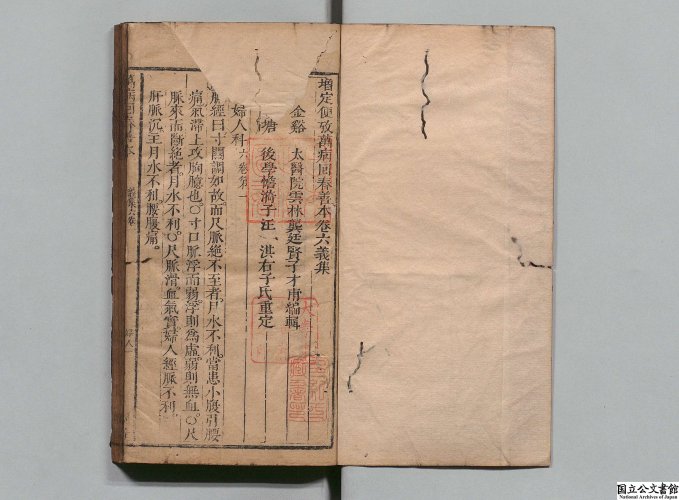 增定便攷萬病回春善本卷六義集
金谿　太醫院雲林龔廷賢子才甫編輯
塘　後學憺漪子汪　淇右子氏重定
婦人科
脈經曰寸關調如故而尺脈絕不至者月水不利當患小腹引腰
痛氣滯上攻胸臆也○寸口脈浮而弱浮則為虛弱則無血○尺
脈來而斷絕者月水不利○尺脈滑血氣實婦人經脈不利
肝脈沉主月水不利腰腹痛
国立公文書館
National Archives of Japan